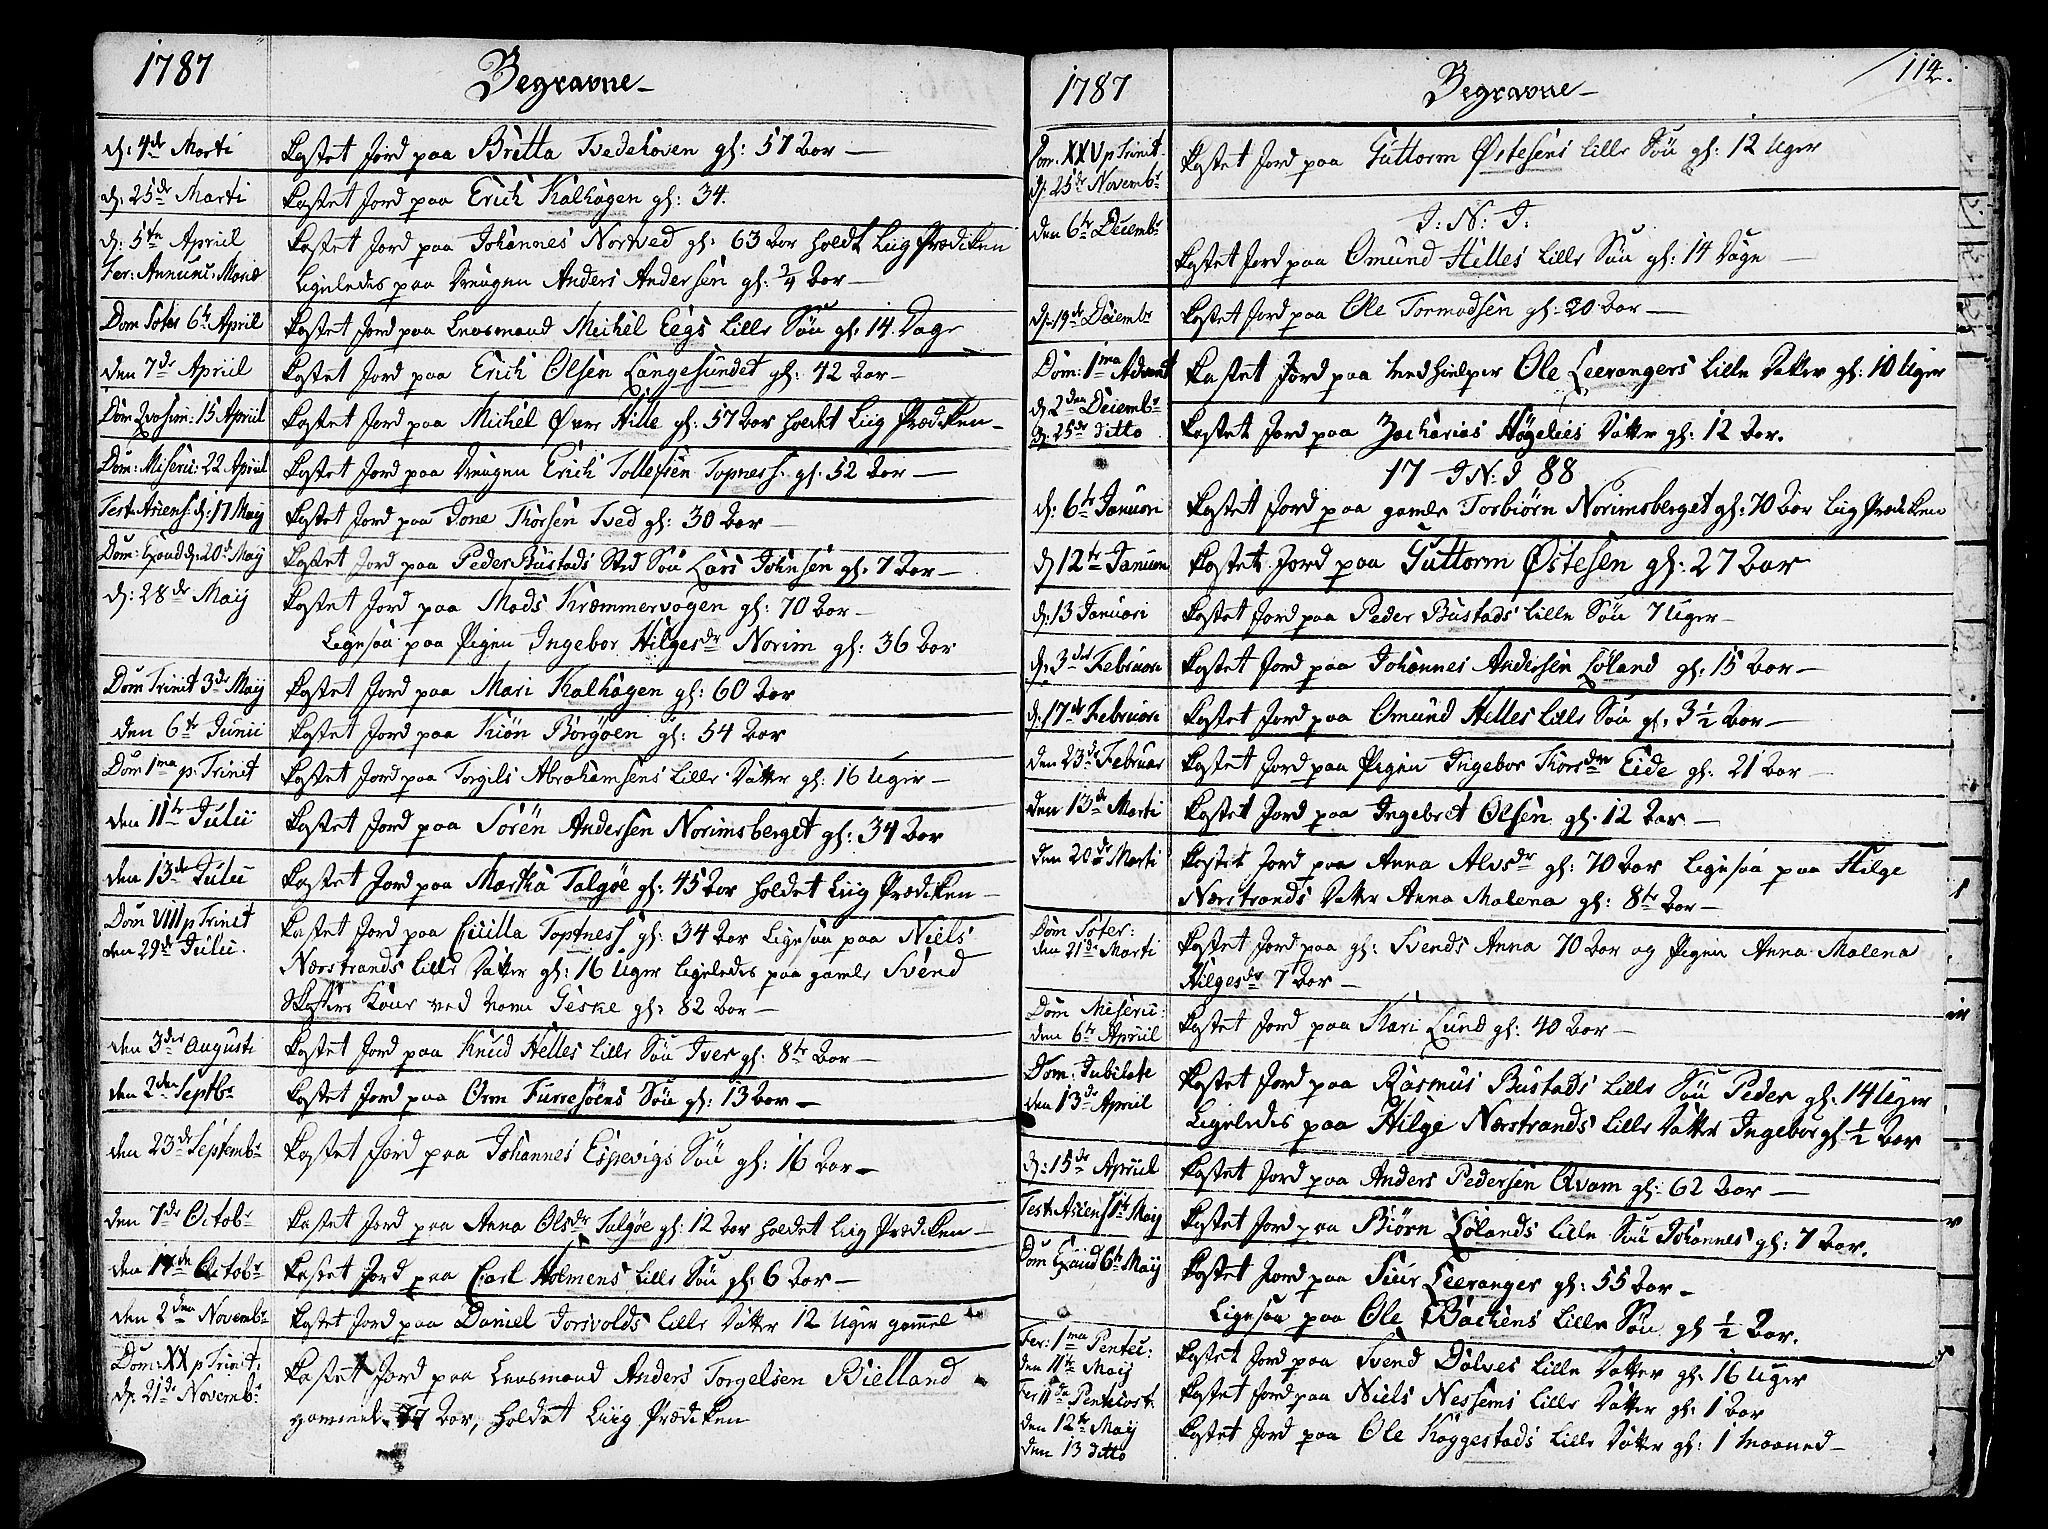 1787 Begravne
d: 4de Marti Kastet Jord paa Britta Tvedehoven gl: 57 Aar
d: 25de Marti Kastet Jord paa Erich Kalhagen gl: 34.
d: 5te Apriil Kastet Jord paa Johannes Nortved gl: 63 Aar holdt Liig Prædiken
Fer: Annunt: Mariæ Ligeledes paa Drengen Anders Andersen gl: 3/4 Aar
Dom Soter 6te April Kastet Jord paa Leensmand Michel Eegs Lille Søn gl: 14 Dage
den 7de Apriil Kastet Jord paa Erich Olsen Langesundet gl: 42 Aar
Dom Qvasim: 15 April Kastet Jord paa Michel Øvre Hille gl: 57 Aar holdt Liig Prædiken
Dom: Miseric: 22 April Kastet Jord paa Drengen Erich Tollefsen Topness. gl: 52 Aar
Fest: Asiens: d: 17 Maij Kastet Jord paa Jone Thorsen Tved gl: 30 Aar
Dom: Exaud d: 20d Maij Kastet Jord paa Peder Bustads Sted Søn Lars Johnsen gl: 7 Aar
d: 28de Maij Kastet Jord paa Mads Kræmmervogen gl: 70 Aar
Ligesaa paa Pigen Ingebor Hilgesdr Norim gl: 36 Aar
Dom Trinit 3de Maij Kastet Jord paa Mari Kalhagen gl: 60 Aar
den 6te Junii Kastet Jord paa Kiøn Borgøen gl: 54 Aar
Dom 1ma p: Trinit Kastet Jord paa Torgils Abrahamsens Lille Datter gl: 16 Uger
den 11te Julii Kastet Jord paa Sørén Andersen Norimsberget gl: 34 Aar
den 13de Julii Kastet Jord paa Martha Talgøe gl: 45 Aar holdet Liig Prædiken
Dom VIII p Trinit Kastet Jord paa Cicilla Toptness gl: 34 Aar Ligesaa paa Niels
den 29de Julii. Nærstrands Lille Datter gl: 16 Uger Ligeledes paa gamle Svend
Kone ved Navn Giske gl: 82 Aar
den 3die Augusti Kastet Jord paa Knud Helles Lille Søn Iver gl: 8te Aar
den 2den Septbr Kastet Jord paa Orm Furresøens Søn gl: 13 Aar
den 23de Septembr Kastet Jord paa Johannes Espevigs Søn gl: 16 Aar
den 7de Octobr Kastet Jord paa Anna Olsdr Talgøe gl: 12 Aar holdet Liig Prædiken
den 14de Octobr Kastet Jord paa Carl Holmens Lille Søn gl: 6 Aar
den 2den Novembr Kastet Jord paa Daniel Jorsvolds Lille Datter 12 Uger gammel
Dom: XX p Trinit: Kastet Jord paa Leensmand Anders Torgelsen Bielland
d: 21de Novembr gammel 77 Aar, holdet Liig Prædiken
1787 Begravne 112.
Dom: XXV p Trinit. Kastet Jord paa Guttorm Østesens Lille Søn gl: 12 Uger
d: 25de Novembr
J: N: J:
den 6te Decembr Kastet Jord paa Omund Hilles Lille Søn gl: 14 Dage
d: 19de Decembr Kastet Jord paa Ole Tormodsen gl: 20 Aar
Dom: 1ma Advent Kastet Jord paa Medhielper Ole Leerangers Lille Datter gl: 10 Uger
d: 2den Decembr
d: 25de ditto Kastet Jord paa Zacharias Høgelies Datter gl: 12 Aar.
17 J: N: J 88
d: 6te Januari Kastet Jord paa gamle Torbiørn Norimsberget gl: 70 Aar Liig Prædiken
d 12te Januari Kastet Jord paa Guttorm Østesen gl: 27 Aar
d: 13 Januari Kastet Jord paa Peder Bustads Lille Søn 7 Uger
d: 3die Februari Kastet Jord paa Johannes Andersen Løland gl: 15 Aar
d: 17de Februari Kastet Jord paa Omund Hilles Lille Søn gl: 3 1/2 Aar
den 23de Februar Kastet Jord paa Pigen Ingebor Thorsdr Eide gl: 21 Aar
den 13de Marti Kastet Jord paa Ingebret Olsen gl: 12 Aar
den 20de Marti Kastet Jord paa Anna Alvsdr gl: 70 Aar Ligesaa paa Hilge
Nærstrands Datter Anna Malena gl: 8te Aar
Dom Soter: Kastet Jord paa gl: Svends Anna 70 Aar og Pigen Anna Malena
den 21de Marti Hilgesdr 7 Aar
Dom Miseric: Kastet Jord paa Mari Lund gl: 40 Aar
den 6te Apriil
Dom: Jubilate Kastet Jord paa Rasmus Bustads Lille Søn Peder gl: 14 Uger
den 13de Apriil Ligeledes paa Hilge Nærstrands Lille Datter Ingebor gl 1/2 Aar
d: 15de Apriil Kastet Jord paa Anders Pedersen Qvam gl: 62 Aar
Fest: Asiens 1te Maij Kastet Jord paa Biørn Lølands Lille Søn Johannes gl: 7 Aar.
Dom Exaud 6te Maij Kastet Jord paa Siur Leeranger gl: 55 Aar
Ligesaa paa Ole Backens Lille Søn gl 1/2 Aar.
Fer: 1ma Pentec: Kastet Jord paa Svend Dalves Lille Datter gl: 16 Uger
den 11te Maij
Fer: IIda Pentecost: Kastet Jord paa Niels Nessems Lille Datter gl: 1 Aar
den 12te Maij
den 13 ditto Kastet Jord paa Ole Kaggestads Lille Datter gl: 1 Maaned